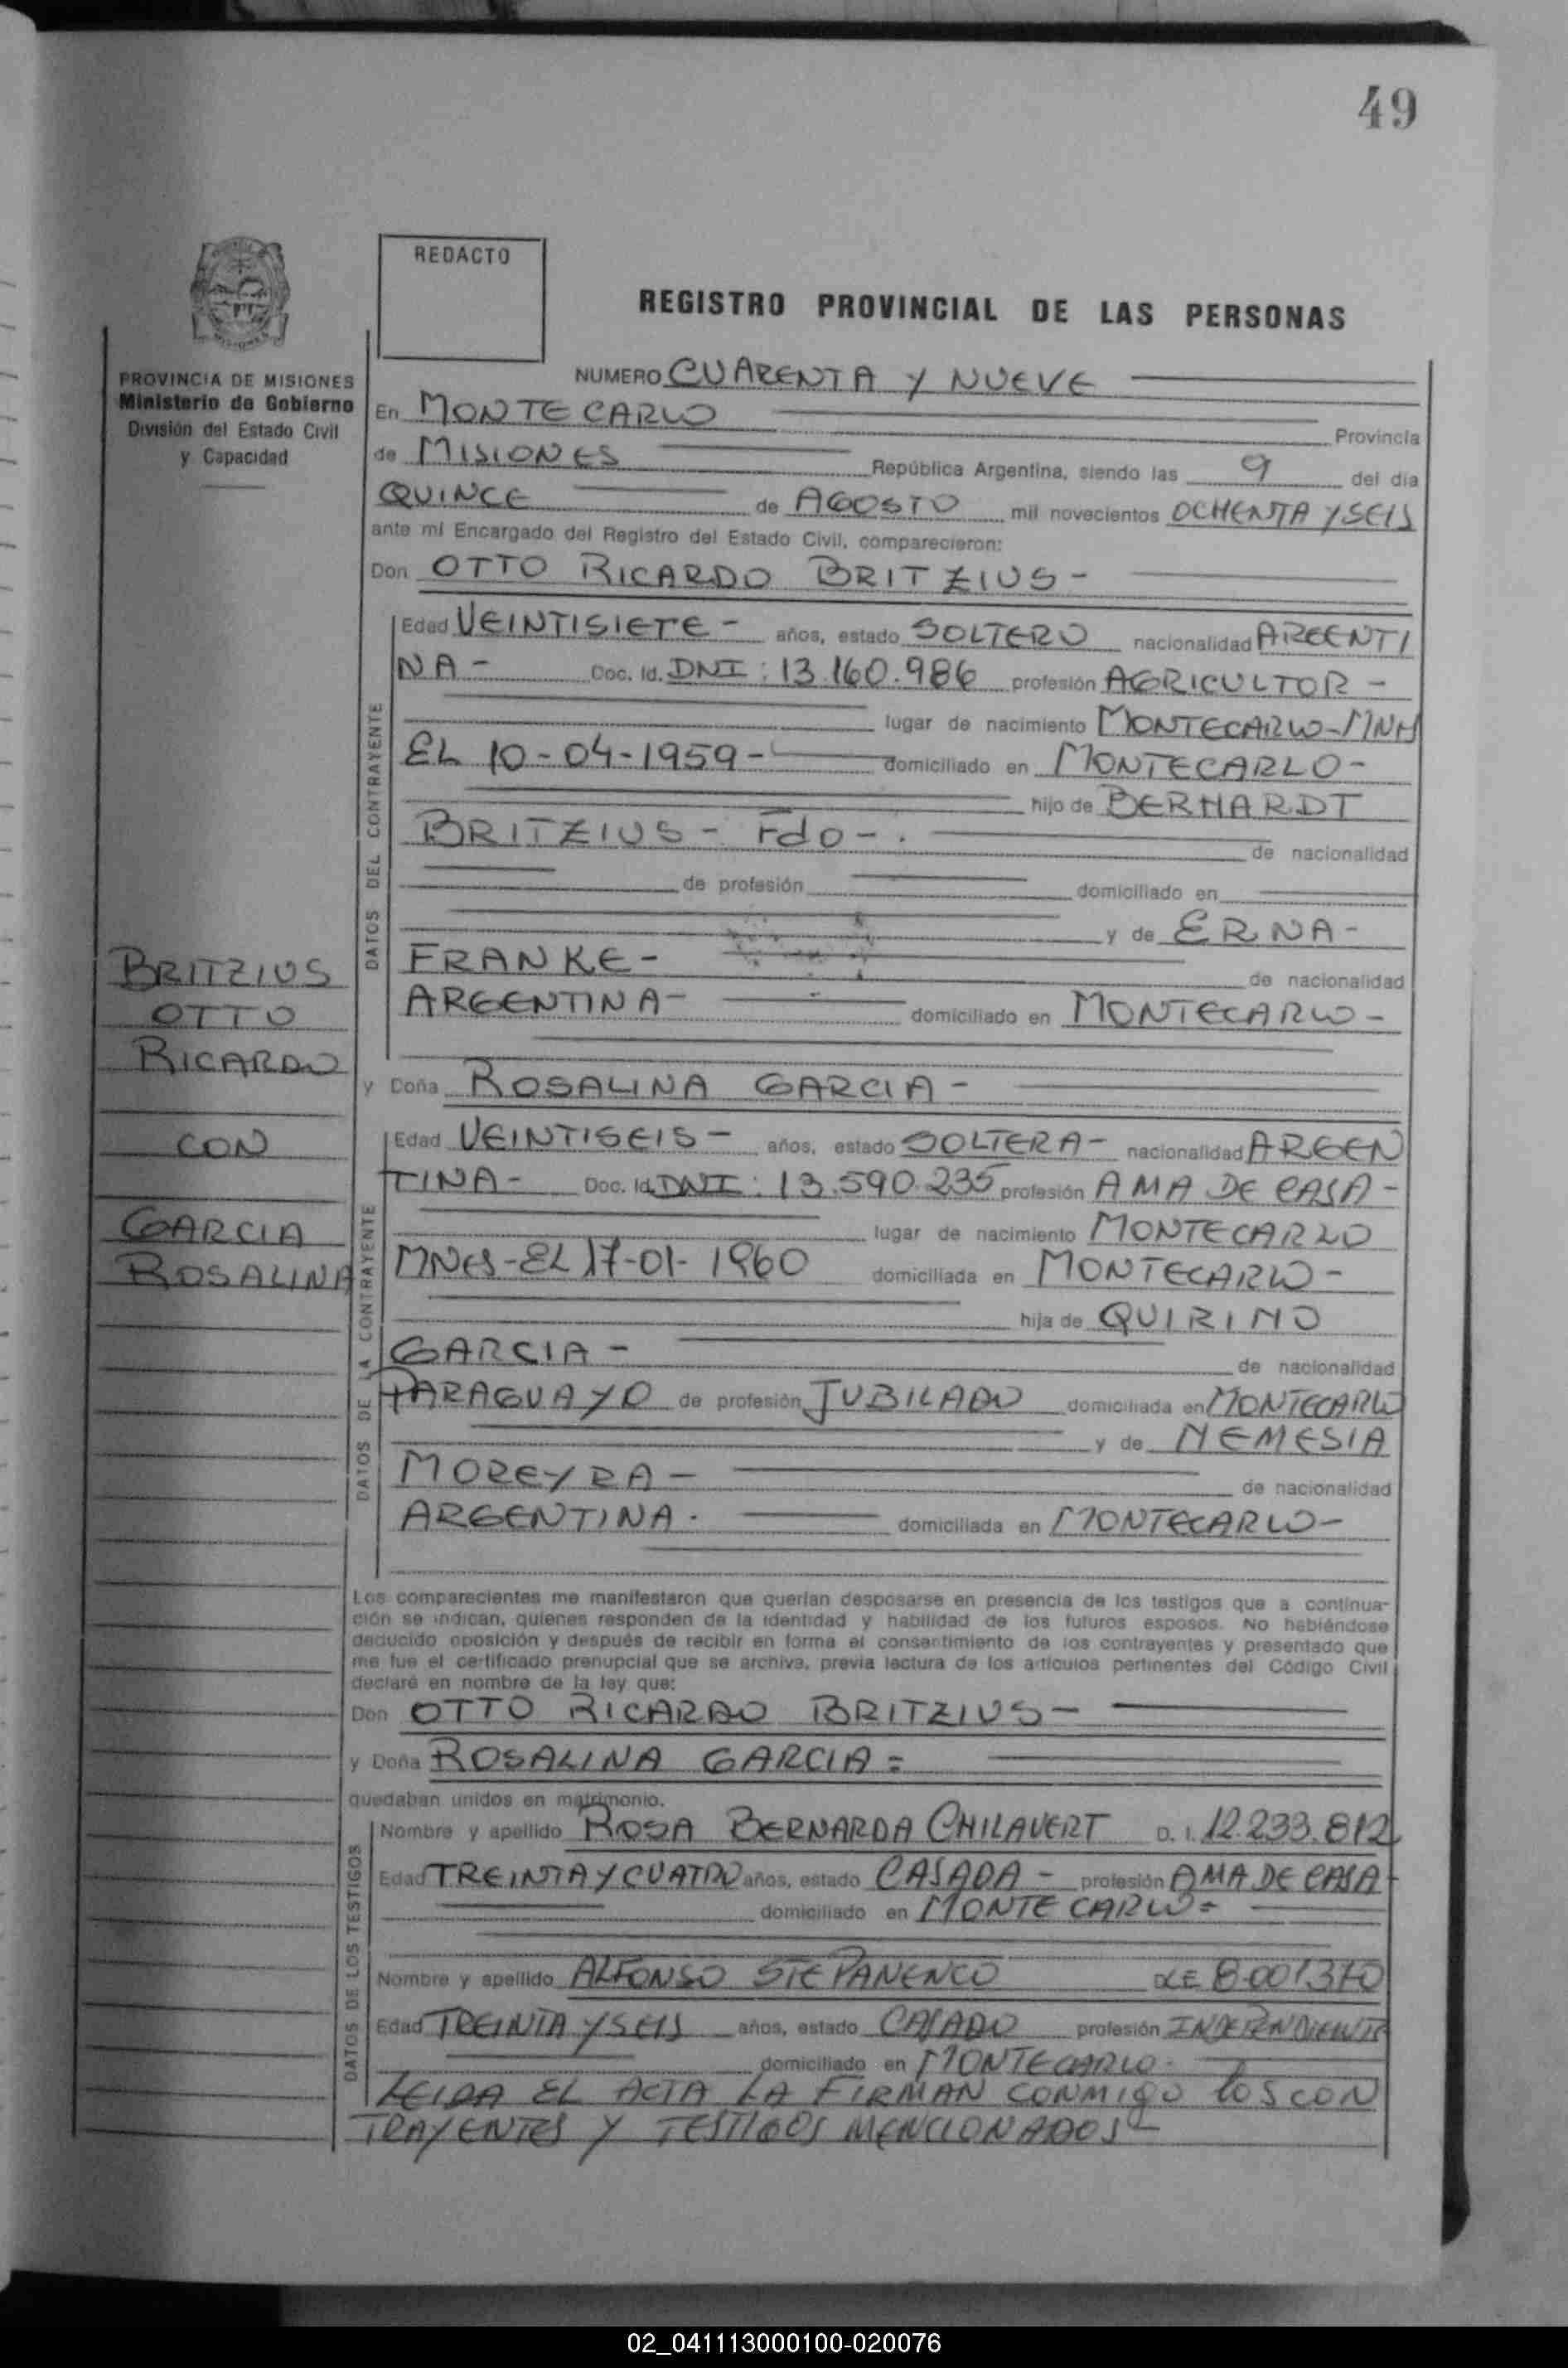 49
REDACTO
REGISTRO PROVINCIAL DE LAS PERSONAS
PROVINCIA DE MISIONES
Ministerio de Gobierno
División del Estado Civil
y Capacidad
NUMERO CUARENTA Y NUEVE
En MONTECARLO Provincia
de MISIONES República Argentina, siendo las 9 del día
QUINCE de AGOSTO mil novecientos OCHENTA Y SEIS
ante mí Encargado del Registro del Estado Civil, comparecieron:
Don OTTO RICARDO BRITZIUS -
DATOS DEL CONTRAYENTE
Edad VEINTISIETE - años, estado SOLTERO nacionalidad ARGENTI
NA - Doc. Id. DNI : 13.160.986 profesión AGRICULTOR -
lugar de nacimiento MONTECARLO - MNES
EL 10-04-1959 - domiciliado en MONTECARLO -
hijo de BERHARDT
BRITZIUS - Fdo - .
de nacionalidad
de profesión domiciliado en
y de ERNA -
FRANKE -
de nacionalidad
ARGENTINA - domiciliado en MONTECARLO -
BRITZIUS
OTTO
RICARDO
CON
GARCIA
ROSALINA
y Doña ROSALINA GARCIA -
DATOS DE LA CONTRAYENTE
Edad VEINTISEIS - años, estado SOLTERA - nacionalidad ARGEN
TINA - Doc. Id. DNI : 13.590.235 profesión AMA DE CASA -
lugar de nacimiento MONTECARLO
MNES - EL 17-01-1960 domiciliada en MONTECARLO -
hija de QUIRINO
GARCIA -
de nacionalidad
PARAGUAYO de profesión JUBILADO domiciliada en MONTECARLO
y de NEMESIA
MOREYRA -
de nacionalidad
ARGENTINA . domiciliada en MONTECARLO -
Los comparecientes me manifestaron que querían desposarse en presencia de los testigos que a continua-
ción se indican, quienes responden de la identidad y habilidad de los futuros esposos. No habiéndose
deducido oposición y después de recibir en forma el consentimiento de los contrayentes y presentado que
me fue el certificado prenupcial que se archiva, previa lectura de los artículos pertinentes del Código Civil
declaré en nombre de la ley que:
Don OTTO RICARDO BRITZIUS -
y Doña ROSALINA GARCIA =
quedaban unidos en matrimonio.
DATOS DE LOS TESTIGOS
Nombre y apellido ROSA BERNARDA CHILAVERT D. I. 12.233.812
Edad TREINTA Y CUATRO años, estado CASADA - profesión AMA DE CASA
domiciliado en MONTECARLO =
Nombre y apellido ALFONSO STEPANENCO DLE 8.001370
Edad TREINTA Y SEIS años, estado CASADO profesión INDEPENDIENTE
domiciliado en MONTECARLO -
LEIDA EL ACTA LA FIRMAN CONMIGO LOS CON
TRAYENTES Y TESTIGOS MENCIONADOS -
02_041113000100-020076